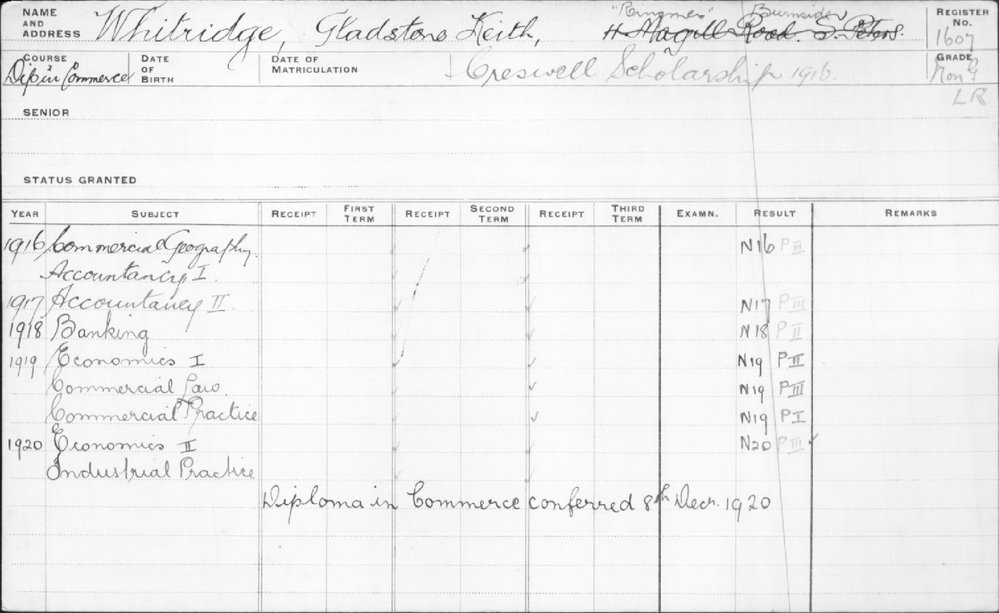 NAME AND ADDRESS Whitridge, Gladstone Keith, "Ringmer" Burnside
H Magill Road. S. Peters.
REGISTER No. 1607
COURSE Dip in Commerce DATE OF BIRTH DATE OF MATRICULATION Creswell Scholarship 1916. GRADE
LR
SENIOR
STATUS GRANTED
YEAR SUBJECT RECEIPT FIRST TERM RECEIPT SECOND TERM RECEIPT THIRD TERM EXAMN. RESULT REMARKS
1916 Commercial Geography. N16 P III
Accountancy I.
1917 Accountancy II. N17 P III
1918 Banking N18 P II
1919 Economics I N19 P II
Commercial Law. N19 P III
Commercial Practice N19 P I
1920 Economics II N20 P III
Industrial Practice
Diploma in Commerce conferred 8th Decr. 1920